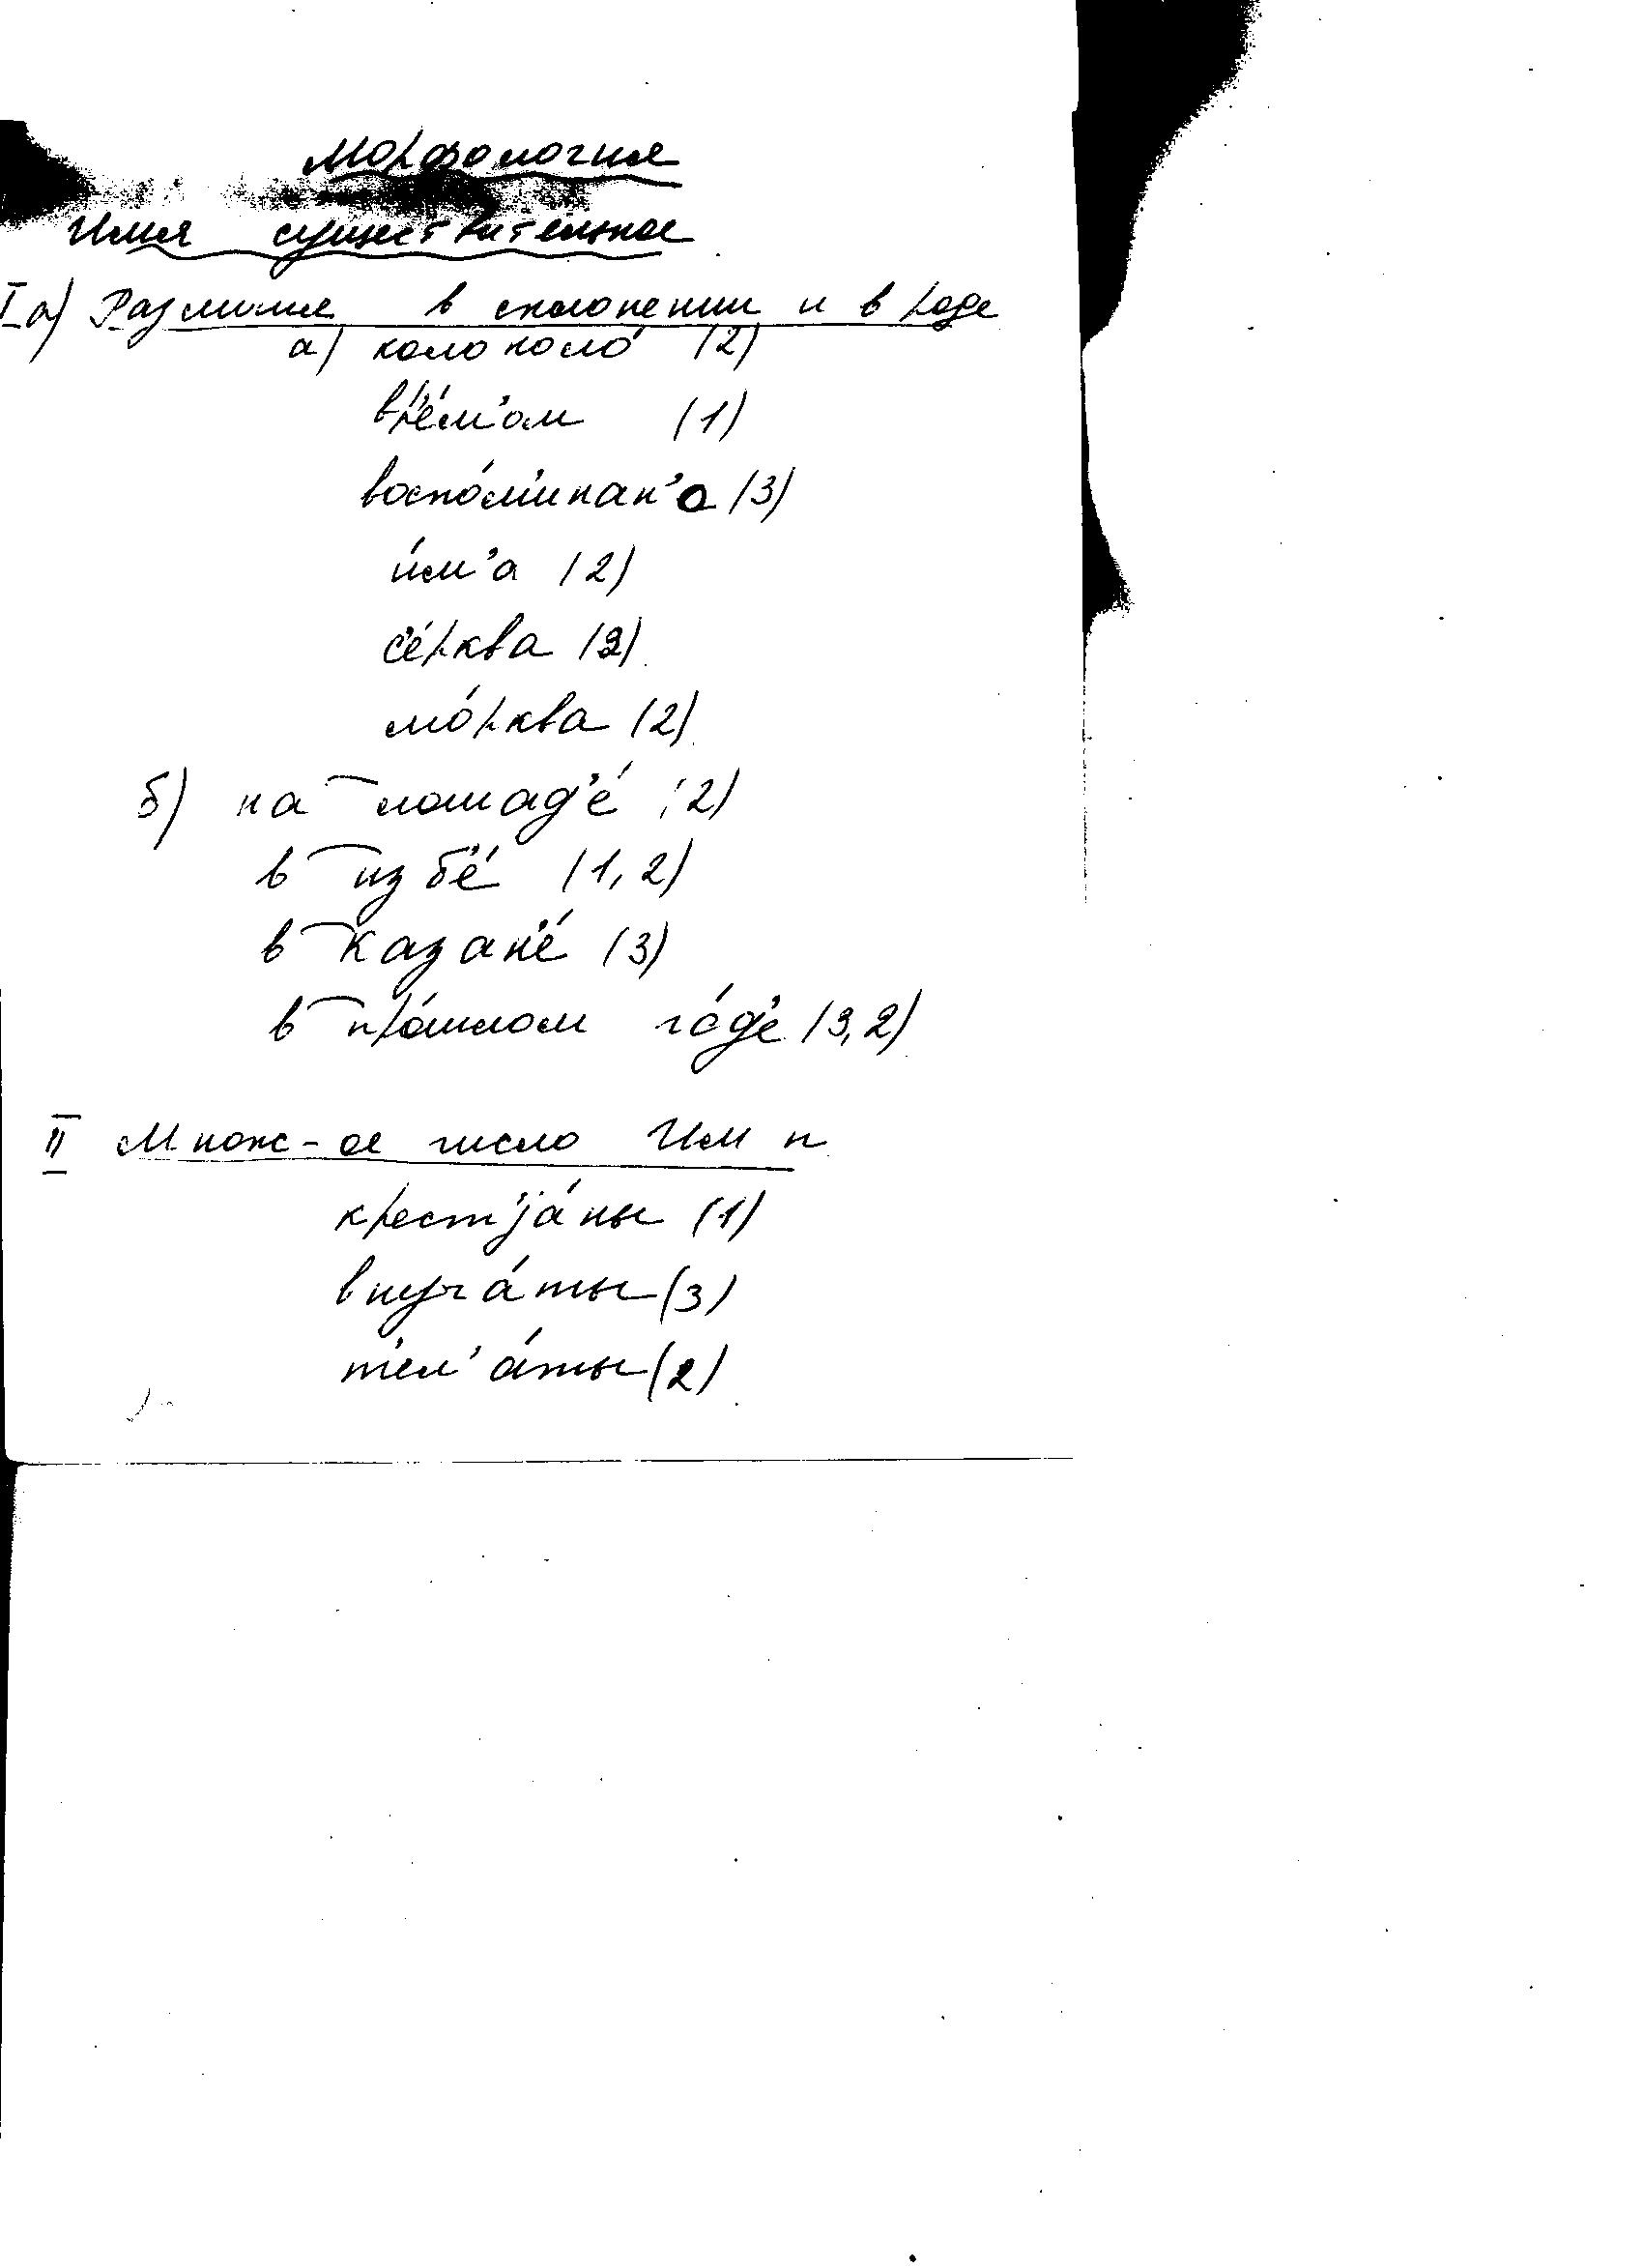 Морфология
Имя существительное
I а) Различия в склонении и в роде
а) колоколо́ (2)
вр'е́м'ом (1)
воспо́м'инан'о (3)
и́м'а (2)
с'е́рква (2)
мо́рква (2)
б) на лошад'е́ (2)
в изб'е́ (1,2)
в Казан'е́ (3)
в про́шлом го́д'е (3,2)
II Множ-ое число Им п
крест'jа́ны (1)
внуча́ты (3)
т'ел'а́ты (2)